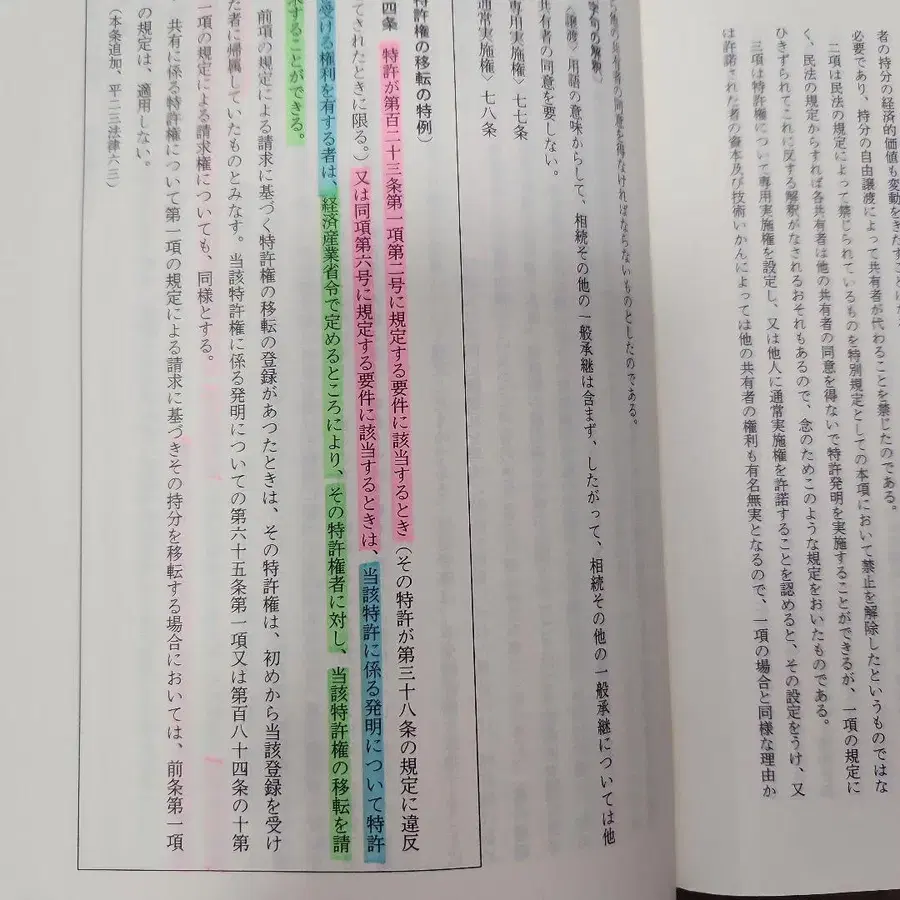 者の持分の経済的価値も変動をきたすことになる
必要であり、持分の自由譲渡によって共有者が代わることを禁じたのである。
二項は民法の規定によって禁じられているものを特別規定としての本項において禁止を解除したというものではな
く、民法の規定からすれば各共有者は他の共有者の同意を得ないで特許発明を実施することができるが、一項の規定に
ひきずられてこれに反する解釈がなされるおそれもあるので、念のためこのような規定をおいたものである。
三項は特許権について専用実施権を設定し、又は他人に通常実施権を許諾することを認めると、その設定をうけ、又
は許諾された者の資本及び技術いかんによっては他の共有者の権利も有名無実となるので、一項の場合と同様な理由か
ら他の共有者の同意を得なければならないものとしたのである。
字句の解釈
〈譲渡〉用語の意味からして、相続その他の一般承継は含まず、したがって、相続その他の一般承継については他
共有者の同意を要しない。
専用実施権〉七七条
通常実施権〉七八条
特許権の移転の特例）
四条　特許が第百二十三条第一項第二号に規定する要件に該当するとき（その特許が第三十八条の規定に違反
てされたときに限る。）又は同項第六号に規定する要件に該当するときは、当該特許に係る発明について特許
受ける権利を有する者は、経済産業省令で定めるところにより、その特許権者に対し、当該特許権の移転を請
求することができる。
前項の規定による請求に基づく特許権の移転の登録があつたときは、その特許権は、初めから当該登録を受け
た者に帰属していたものとみなす。当該特許権に係る発明についての第六十五条第一項又は第百八十四条の十第
一項の規定による請求権についても、同様とする。
共有に係る特許権について第一項の規定による請求に基づきその持分を移転する場合においては、前条第一項
の規定は、適用しない。
（本条追加、平二三法律六三）